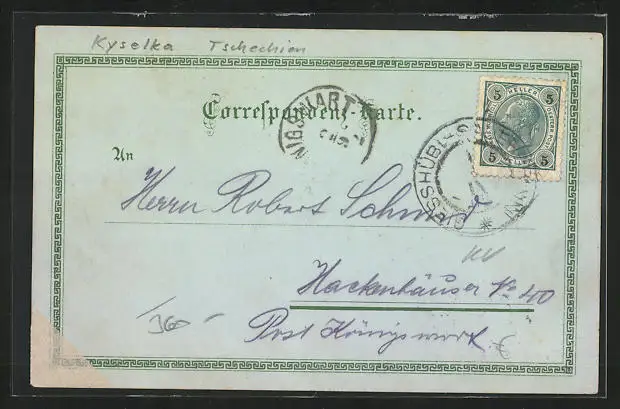 Kyselka Tschechien
Correspondenz-Karte.
5 HELLER 5
5 HELLER 5
GIESSHÜBL
An
Herrn Robert Schmied
Hackenhäuser No 40
Post Königswart
360 -